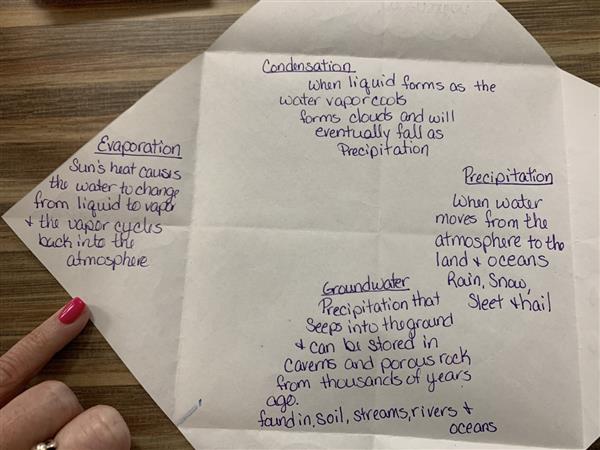 Condensation
when liquid forms as the
water vapor cools
forms clouds and will
eventually fall as
Precipitation
Evaporation
Sun's heat causes
the water to change
from liquid to vapor
& the vapor cycles
back into the
atmosphere
Precipitation
when water
moves from the
atmosphere to the
land & oceans
Rain, Snow,
Sleet & hail
Groundwater
Precipitation that
Seeps into the ground
& can be stored in
caverns and porous rock
from thousands of years
ago.
found in, soil, streams, rivers &
oceans